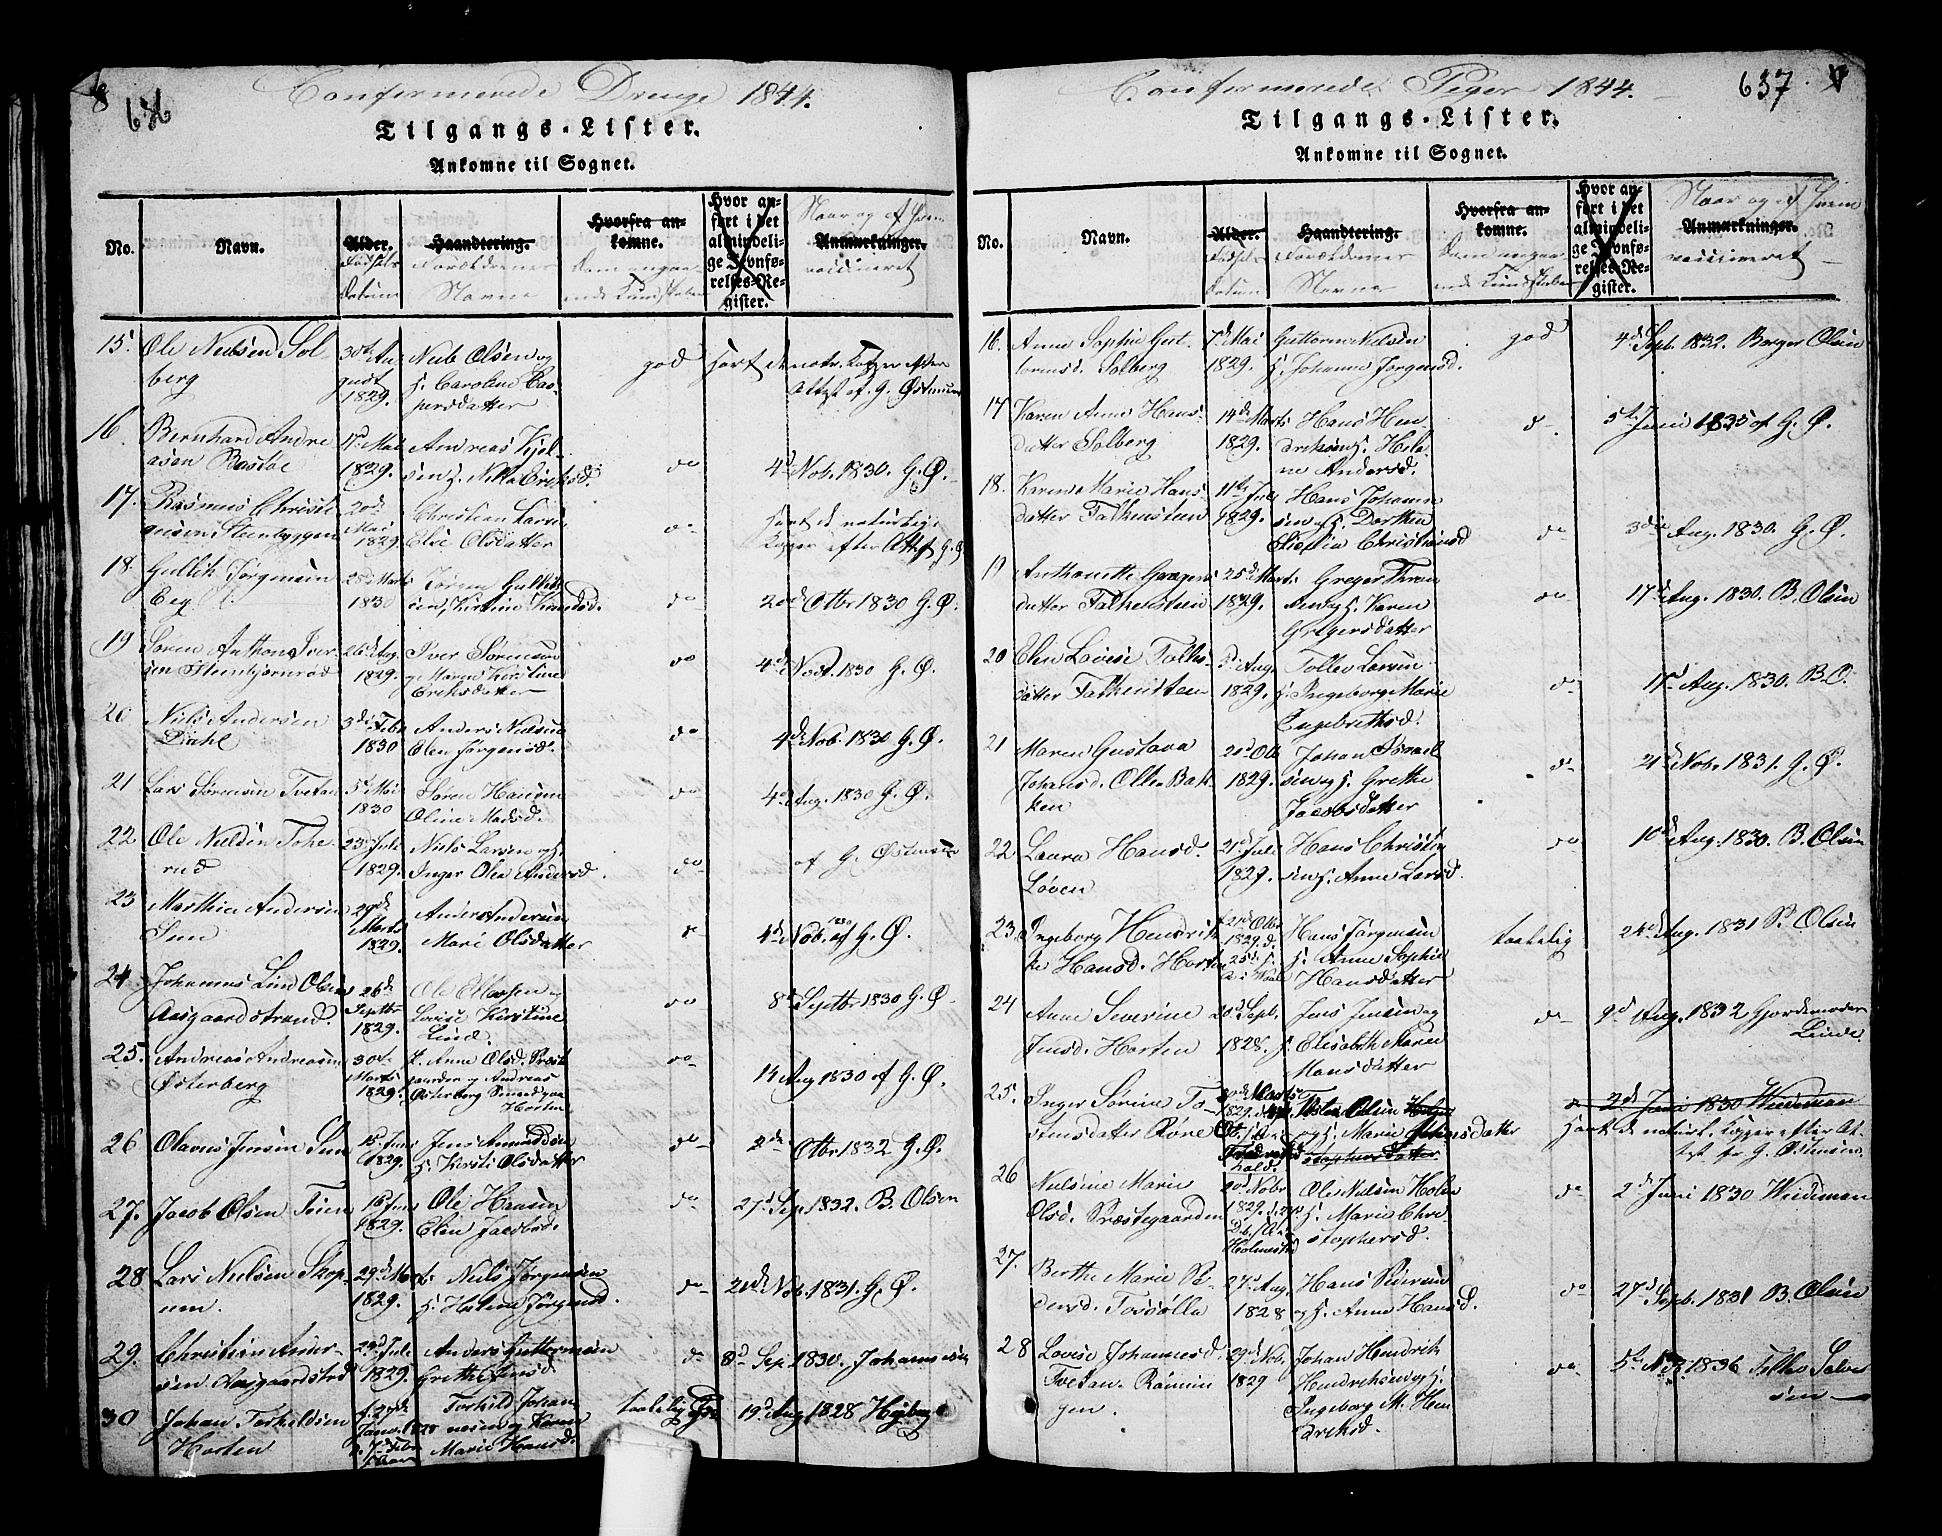 636
Confirmerede Drenge 1844.
Tilgangs-Lister.
Ankomne til Sognet.
No.
Navn.
Alder.
Fødsels
Datum
Haandtering.
Forældrenes
Navne
Hvorfra an-
komne.
Hvor an-
ført i det
alminddeli-
ge Jevnfø-
relses-Re-
gister.
Naar og af hvem
Anmærkninger.
vaccineret
15. Ole Nielsen Sol
berg
30te Au
gust
1829.
Niels Olsen og
h. Caroline Cas-
persdatter
god
havt de natr. Kopper efter
Attest af G. Østensen
16. Bernhard Andre
asen Bastøe
17d Mai
1829.
Andreas Kjel-
sen h. Nilla Eriksd.
do
4d Nov. 1830. G. Ø.
17. Rasmus Christi
ansen Steenbyggen
20d
Mai
1829
Christian Larsen
Else Olsdatter
do
havt de naturlige
Kopper efter Attest G. Ø
18. Gullik Jørgensen
Beg
28d Marts
1830
Jørgen Gullik
sen, Kirstine Knudsd.
do
20d Otbr 1830 G. Ø.
19 Søren Anthon Iver
sen Steenbjørnrød
26d Aug.
1829.
Iver Sørensen
og Maren Kirstine
Eriksdatter
do
4de Novt. 1830 G. Ø.
20 Niels Andersen
Dahl
3die Febr
1830
Anders Nielsen
Elen Jørgensd.
do
4de Nob. 1830 G. Ø.
21 Lars Sørensen Tvetan
5t Mai
1830
Søren Hansen
Oline Madsd.
do
4d Aug. 1830 G. Ø.
22 Ole Nielsen Tohe
rud
23d Juli
1829.
Niels Larsen og h.
Inger Olea Andersd.
do
af G. Østensen
23 Matthias Andersen
Sem
29d
Marts
1829.
Anders Andersen
Mari Olsdatter
do
4de Nob. 1830 af G. Ø.
24 Johannes Lind Olsen
Aasgaardstrand.
26d
Septbr
1829.
Lovise Kirstine
Lind.
do
8d Septbr 1830 G. Ø.
25. Andreas Andreasen
Østerberg
30t
Marts
1829.
F. Anne Olsd. Præst
gaarden og Andreas
Østerberg
Horten
do
14 Aug 1830 af G. Ø.
26 Olavus Jensen Sem
15 Juni
1829.
Jens Amundsen
h. Kirsti Olsdatter
do
2den Otbr 1832 G. Ø.
27. Jacob Olsen Føien
16 Juni
1829.
Ole Hansen
Elen Jacobsd.
do
27d Sep. 1832. B. Olsen
28 Lars Nielsen Skop-
um.
29d Marts
1829.
Niels Jørgensen
h. Helena Jørgensd.
do
21de Nob. 1831. G. Ø.
29. Christian Ander-
sen Aasgaardstrd
23d Juli
1829.
Anders Guttormsen
Grethe Jensd.
do
8d Sep. 1830. Johannesen
30 Johan Torkildsen
Horten
f. 27de
Janv. 1828
d. 7d Febr
Torkild Johan
nesen og Karen
Marie Hansd.
taalelig
19d Aug 1828
637
Confirmerede Piger 1844.
Tilgangs-Lister.
Ankomne til Sognet.
No.
Navn.
Alder.
Fødsels
Datum
Haandtering.
Forældrenes
Navne
Hvorfra an-
komne.
Hvor an-
ført i det
almindeli-
ge Jevnfø-
relses-Re-
gister.
Naar og af hvem
Anmærkninger.
vaccineret
16. Anne Sophie Gut-
tormsd. Solberg
7d Mai
1829.
Guttorm Nielsen
h. Johanne Jørgensd.
god
4d Septb. 1832. Berger Olsen
17 Karen Anne Hans-
datter Solberg
14de Marts
1829.
Hans Hen
driksen h. Hele-
ne Andersd.
do.
5te Juni 1835 af G. Ø.
18. Karen Marie Hans-
datter Falkensteen
11te Juli
1829.
Hans Johann
sen og h. Dorthea
Sophia Christiansd
do
3die Aug. 1830. G. Ø.
19 Anthonette Gregers
datter Falkensteen
25d Marts
1829.
Greger Thron
sen og h. Karen
Gregersdatter
do
17d Aug. 1830. B. Olsen
20 Elen Lovise Tollefs-
datter Falkensteen
5d Aug.
1829.
Tollev Larsen
h. Ingeborg Marie
Engebrethsd.
do
17d Aug. 1830. B. O.
21 Maren Gustava
Johansd. Oltia Bak
ken
21d Otb
1829.
Johan Israel
sen og h. Grethe
Jacobsdatter
do
21d Nob. 1831. G. Ø.
22 Laura Hansd.
Løven
21d Juli
1829.
Hans Christen
sen h. Anne Larsd.
do
10d Aug. 1830. B. Olsen
23. Ingeborg Hendrik
ke Hansd. Horten
f. 21d Otbr
1829. d.
Hans Jørgensen
h. Anne Sophie
Hansdatter
taalelig
24d Aug. 1831 S. Olsen
24 Anne Severine
Jensd. Horten
20d Septb.
1828.
Jens Jensen og
h. Elisabeth Marie
Hansdatter
do
9d Aug. 1832 Gjordemoder
Linde
25. Inger Sørine To-
stensdatter Røre
Tosten Olsen
og h. Marie
stophersdatter
do 2d Juni 1830 Weideman
havt de naturl. Kopper efter At-
test fr G. Østensen
26 Nielsine Marie
Olsd. Præstegaarden
20d Nobr
1829.
Holmestrd
Ole Nielsen Holm
h. Marie Chri
stophersd.
do
2d Juni 1830 Weideman
27. Berthe Marie Pe-
dersd. Fossølla
27d Aug.
1828
Hans Pedersen
og h. Anne Hansd.
do
27d Septb. 1831 B. Olsen
28 Lovise Johannesd.
Tvetan. Røren
gen.
29d Nob.
1829
Johan Hendrik
Hendriksen og h.
Ingeborg M. Hen
driksd.
do
5te 1836 Tollev Salve
sen